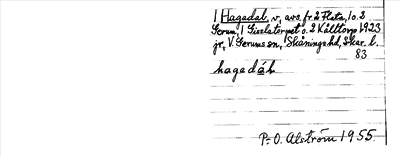 1 Hagadal, v, avs. fr. 2 Flata, 1 o. 3
Gerum, 1 Giselstorpet o. 2 Källtorp 1923
jr, V. Gerums sn, Skånings hd, Skar. l.
83
hagadál
P. O. Alström 1955.